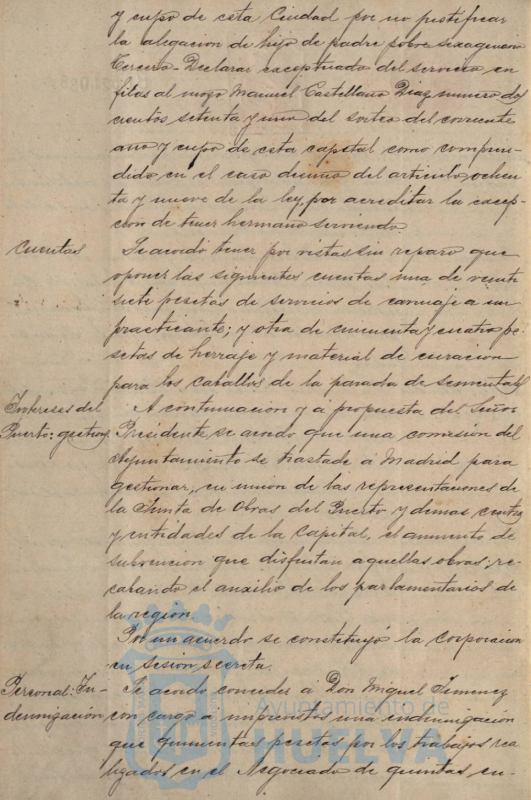 y cupo de esta Ciudad por no justificar
la alegacion de hijo de padre pobre sexagenario
Tercero- Declarar exceptuado del servicio en
filas al mozo Manuel Castellano Diaz numero dos
cientos setenta y uno del sorteo del corriente
año y cupo de esta capital como compren-
dido en el caso decimo del articulo ochen
ta y nueve de la ley, por acreditar la excep-
cion de tener hermano sirviendo.
Cuentas
Se acordó tener por vistas sin reparo que
oponer las siguientes cuentas una de veinte
siete pesetas de servicios de carruaje a un
practicante; y otra de cincuenta y cuatro pe-
setas de herraje y material de curacion
para los caballos de la parada de sementales
Intereses del
Puerto: gestion
A continuacion y a propuesta del Señor
Presidente se acordo que una comision del
Ayuntamiento se traslade á Madrid para
gestionar, en union de las representaciones de
la Junta de Obras del Puerto y demas
y entidades de la Capital, el aumento de
subvencion que disfrutan aquellas obras: re-
cabando el auxilio de los parlamentarios de
la region
Por un acuerdo se constituyó la Corporacion
en sesion secreta.
Personal: In-
demnizacion
Se acordo conceder á Don Miguel Jimenez
con cargo a imprevistos una indemnizacion
que quinientas pesetas por los trabajos rea-
lizados en el Negociado de quintas en-
Ayuntamiento de
HUELVA